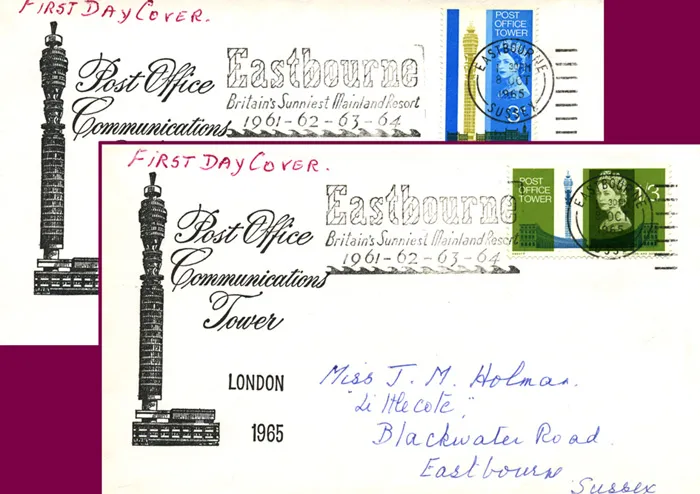 FIRST DAY COVER.
Post Office
Communications
Eastbourne
Britain's Sunniest Mainland Resort
1961-62-63-64
POST
OFFICE
TOWER
3
EASTBOURNE
8 OCT
1965
SUSSEX
FIRST DAY COVER.
Post Office
Communications
Tower
LONDON
1965
Eastbourne
Britain's Sunniest Mainland Resort
1961-62-63-64
POST
OFFICE
TOWER
3
EASTBOURNE
OCT
Miss J. M. Holman.
"Littlecote",
Blackwater Road.
Eastbourne
Sussex